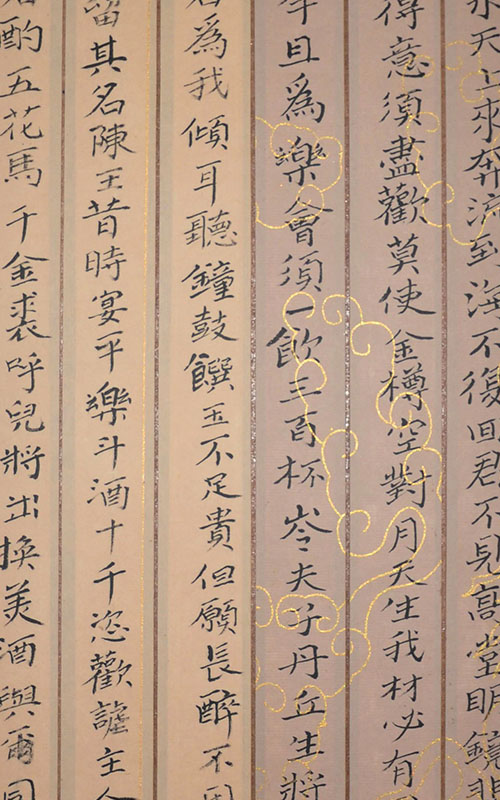 水天上來奔流到海不復回君不見高堂明鏡悲
得意須盡歡莫使金樽空對月天生我材必有
羊且為樂會須一飲三百杯岑夫子丹丘生將
君為我傾耳聽鐘鼓饌玉不足貴但願長醉不用
留其名陳王昔時宴平樂斗酒十千恣歡謔主人
君酌五花馬千金裘呼兒將出換美酒與爾同